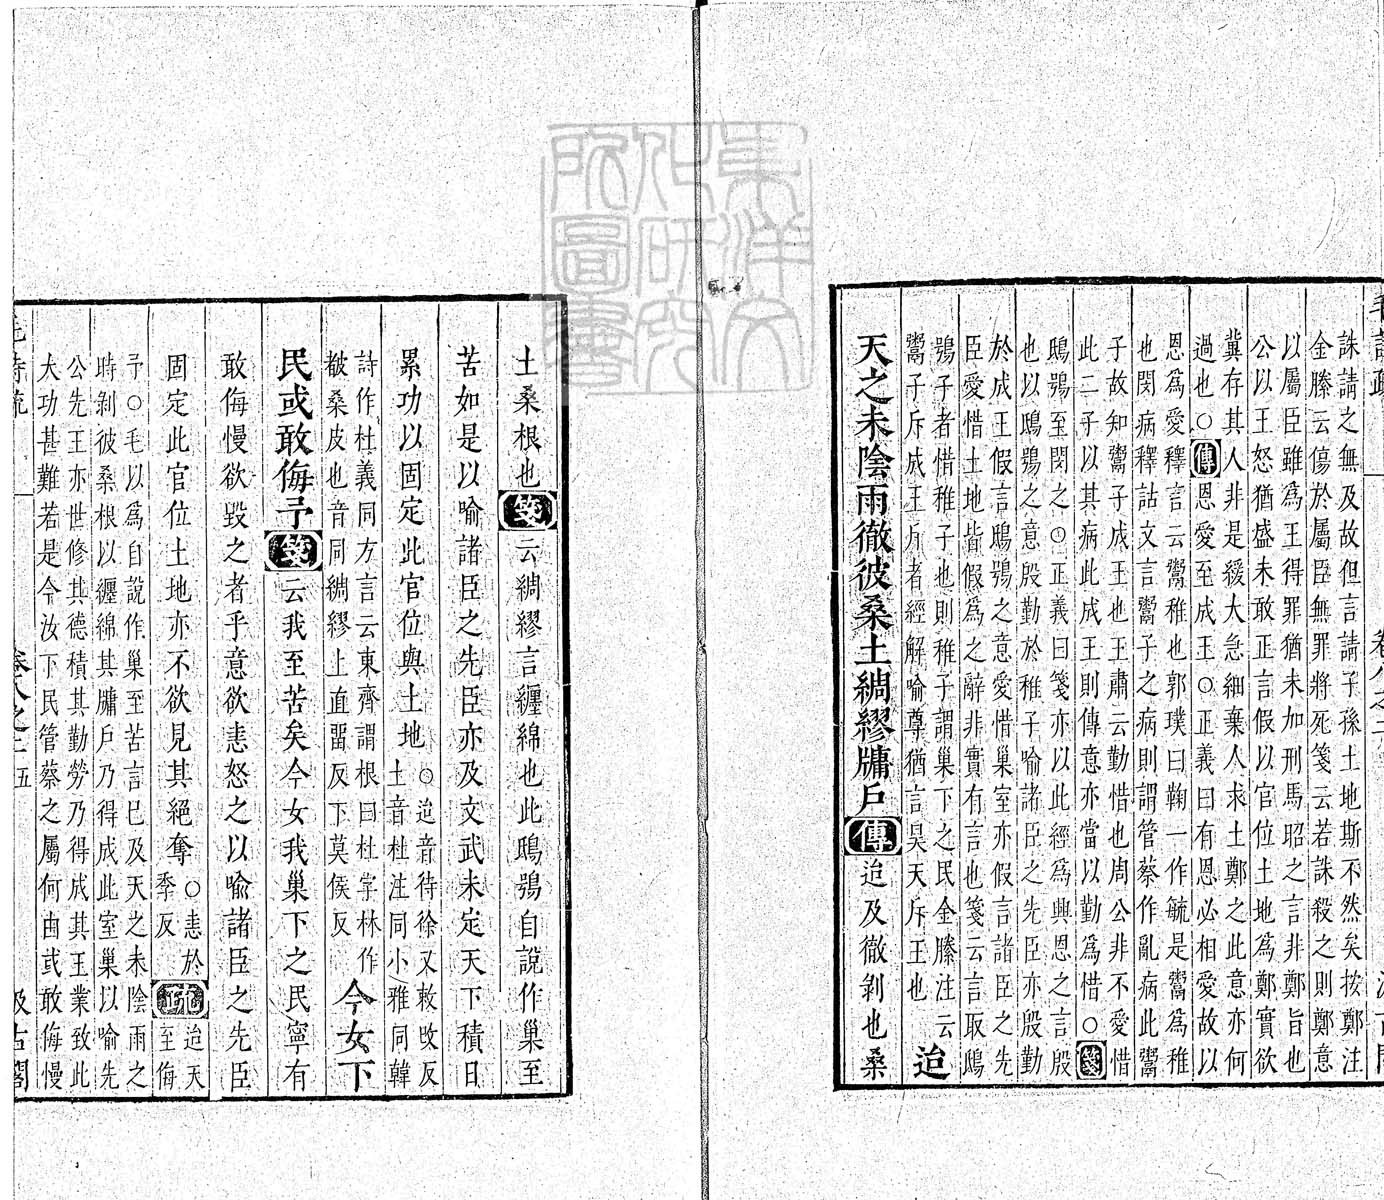 誅請之無及故但言請子孫土地斯不然矣按鄭注
金縢云傷於屬臣無罪將死箋云若誅殺之則鄭意
以屬臣雖為王得罪猶未加刑馬昭之言非鄭旨也
公以王怒猶盛未敢正言假以官位土地為鄭實欲
冀存其人非是緩大急細棄人求土鄭之此意亦何
過也○傳恩愛至成王○正義曰有恩必相愛故以
恩為愛釋言云鬻稚也郭璞曰鞠一作毓是鬻為稚
也閔病釋詁文言鬻子之病則謂管蔡作亂病此鬻
子故知鬻子成王也王肅云勤惜也周公非不愛惜
此二子以其病此成王則傳意亦當以勤為惜○箋
鴟鴞至閔之○正義曰箋亦以此經為興恩之言殷
也以鴟鴞之意殷勤於稚子喻諸臣之先臣亦殷勤
於成王假言鴟鴞之意愛惜巢室亦假言諸臣之先
臣愛惜土地皆假為之辭非實有言也箋云言取鴟
鴞子者惜稚子也則稚子謂巢下之民金縢注云
鬻子斥成王斥者經解喻尊猶言昊天斥王也 迨
天之未陰雨徹彼桑土綢繆牖戶傳迨及徹剝也桑
土桑根也箋云綢繆言纏綿也此鴟鴞自說作巢至
苦如是以喻諸臣之先臣亦及文武未定天下積日
累功以固定此官位與土地○迨音待徐又敕改反
土音杜注同小雅同韓
詩作杜義同方言云東齊謂根曰杜字林作
𢾍桑皮也音同綢繆上直畱反下莫侯反 今女下
民或敢侮予箋云我至苦矣今女我巢下之民寧有
敢侮慢欲毀之者乎意欲恚怒之以喻諸臣之先臣
固定此官位土地亦不欲見其絕奪○恚於
季反疏迨天
至侮
予○毛以為自說作巢至苦言巳及天之未陰雨之
時剝彼桑根以纏綿其牖戶乃得成此室巢以喻先
公先王亦世修其德積其勤勞乃得成其王業致此
大功甚難若是今汝下民管蔡之屬何由或敢侮慢
毛詩疏 卷八之二 五 汲古閣